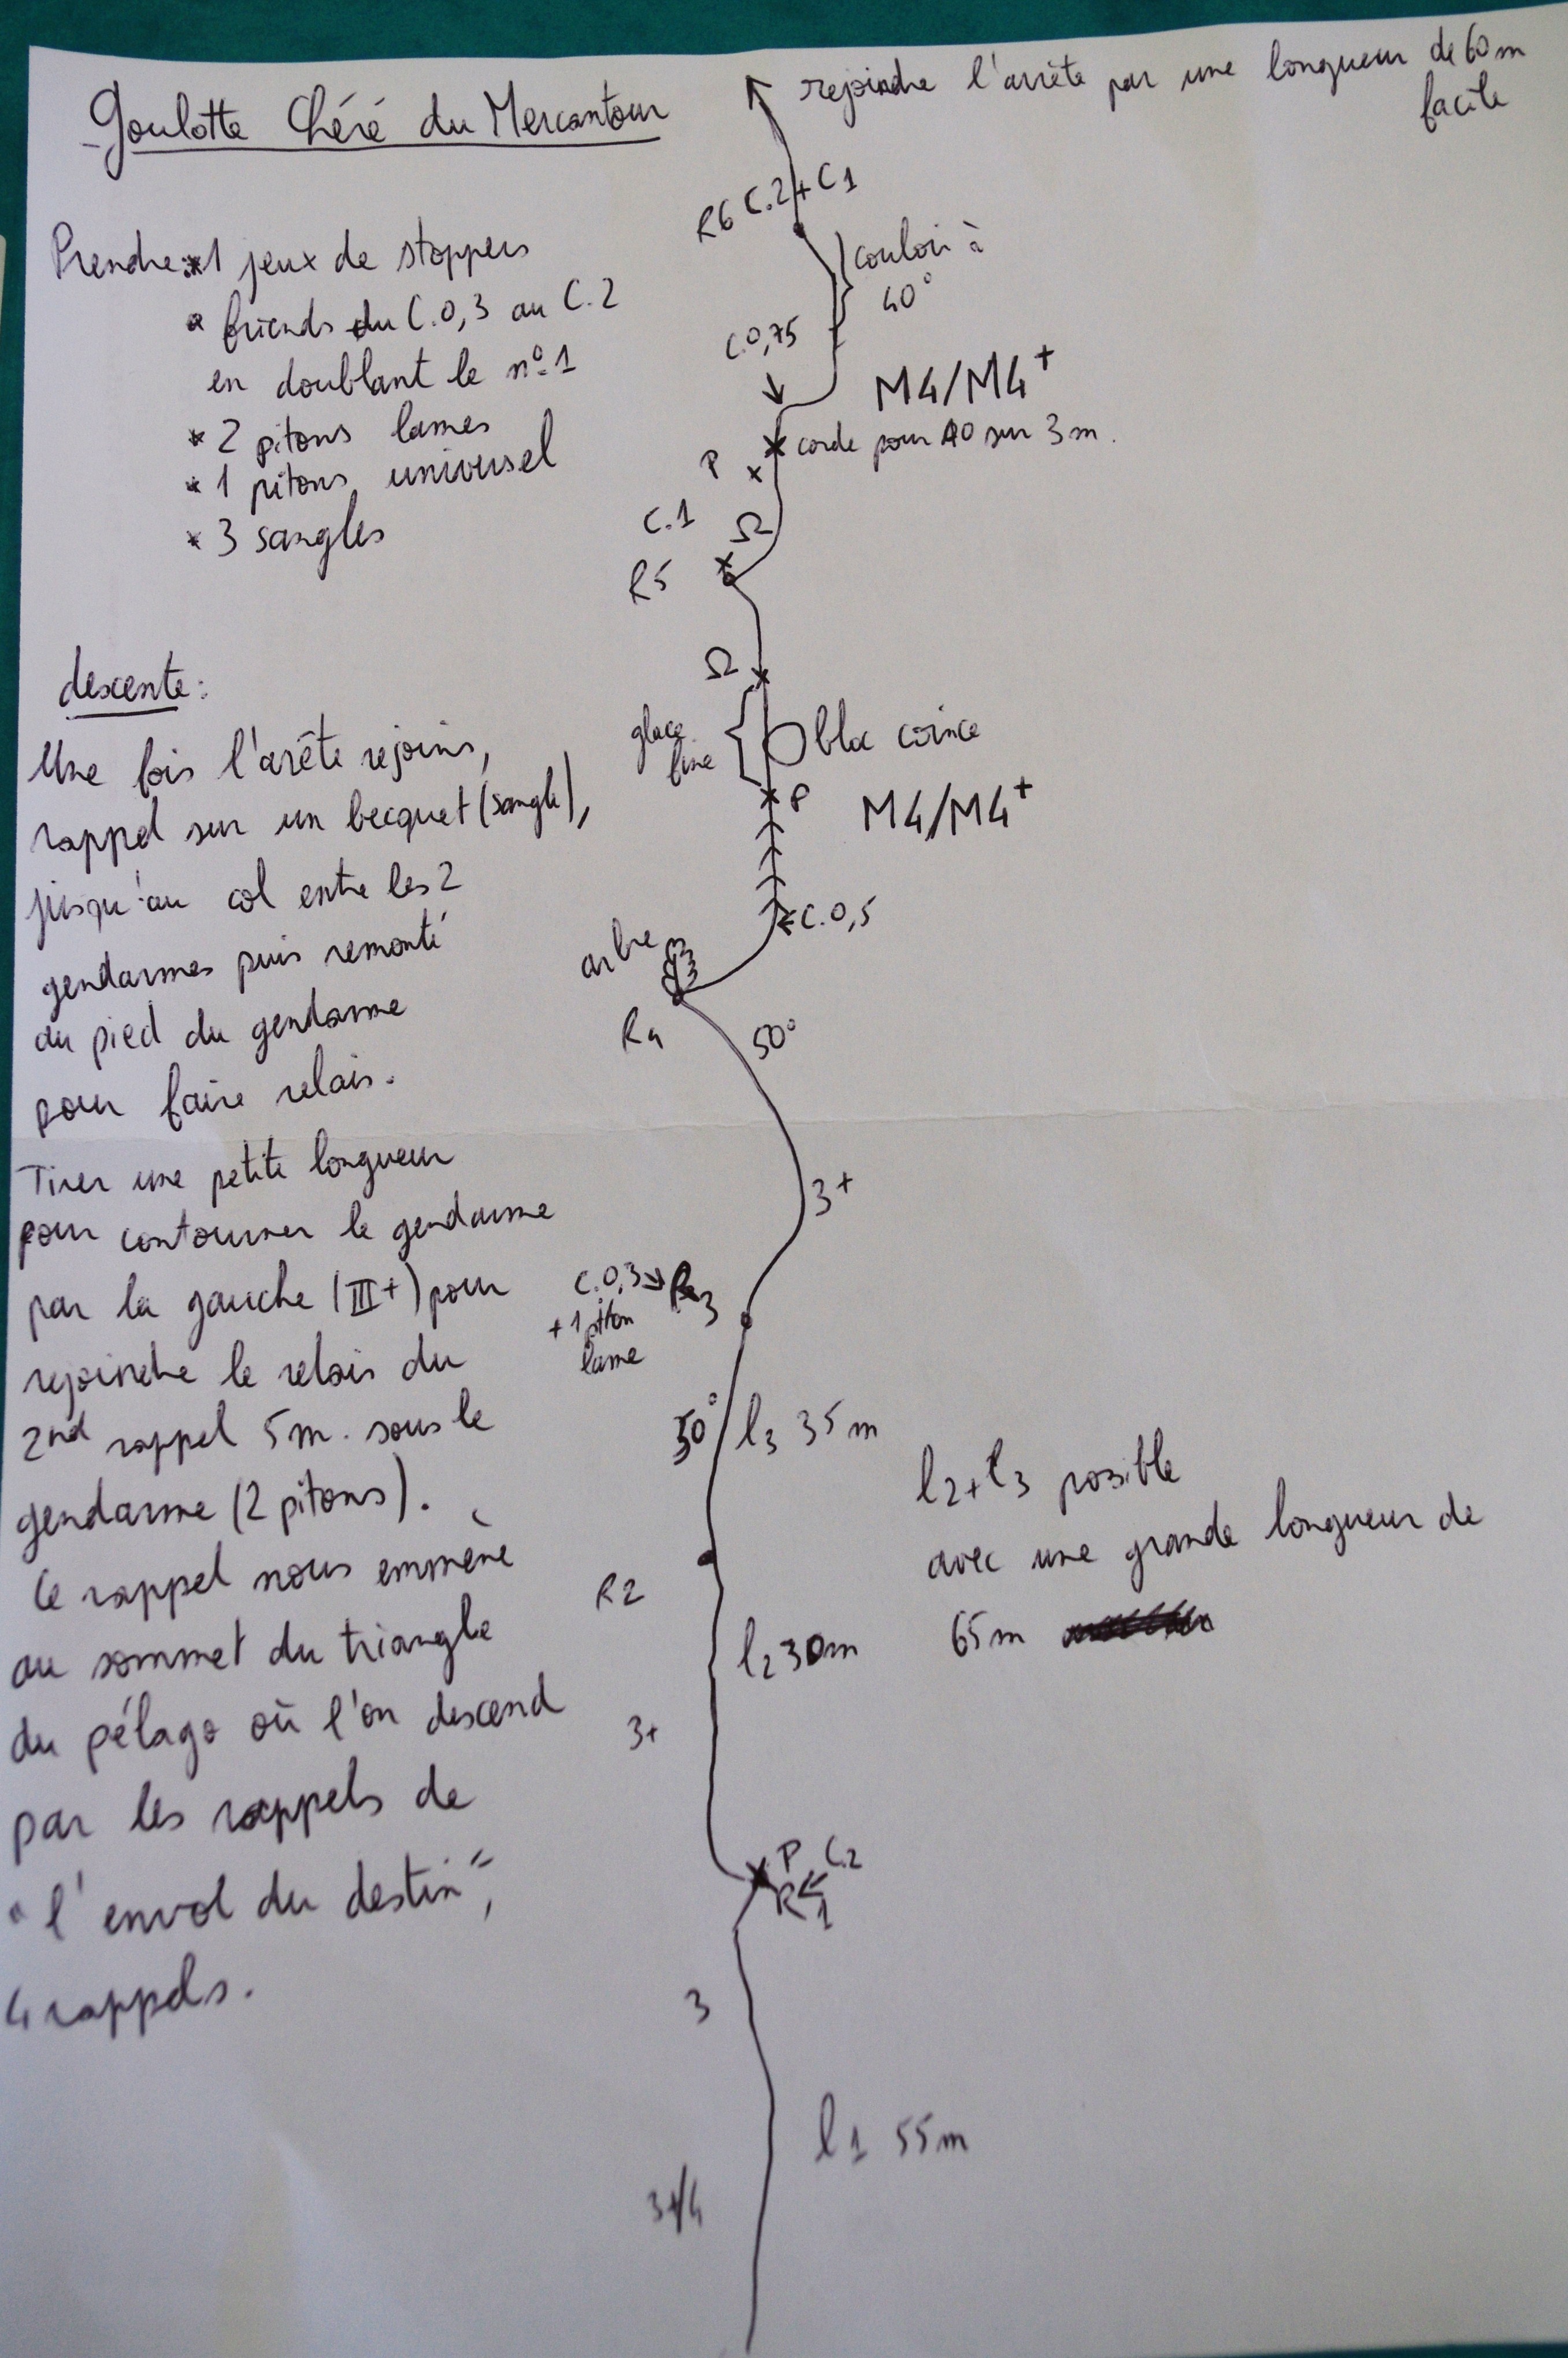 Goulotte Chéré du Mercantour
rejoindre l'arrête par une longueur de 60m
facile
Prendre: *1 jeux de stoppers
* friends du C.0,3 au C.2
en doublant le n°1
* 2 pitons lames
* 1 pitons universel
* 3 sangles
R6 C.2+C1
couloir à
40°
C.0,75
M4/M4+
corde pour A0 sur 3m.
P
C.1
Ω
R5
Ω
glace
fine
bloc coince
P
M4/M4+
C.0,5
arbre
R4
50°
3+
C.0,3 R3
+ 1 piton
lame
50°
l3 35m
l2+l3 possible
avec une grande longueur de
65m
R2
l2 30m
3+
P C.2
R1
3
l1 55m
3+/4
descente:
Une fois l'arête rejoins,
rappel sur un becquet (sangle),
jusqu'au col entre les 2
gendarmes puis remonté
au pied du gendarme
pour faire relais.
Tirer une petite longueur
pour contourner le gendarme
par la gauche (III+) pour
rejoindre le relais du
2nd rappel 5m. sous le
gendarme (2 pitons).
Ce rappel nous emmène
au sommet du triangle
du pélago où l'on descend
par les rappels de
"l'envol du destin",
4 rappels.